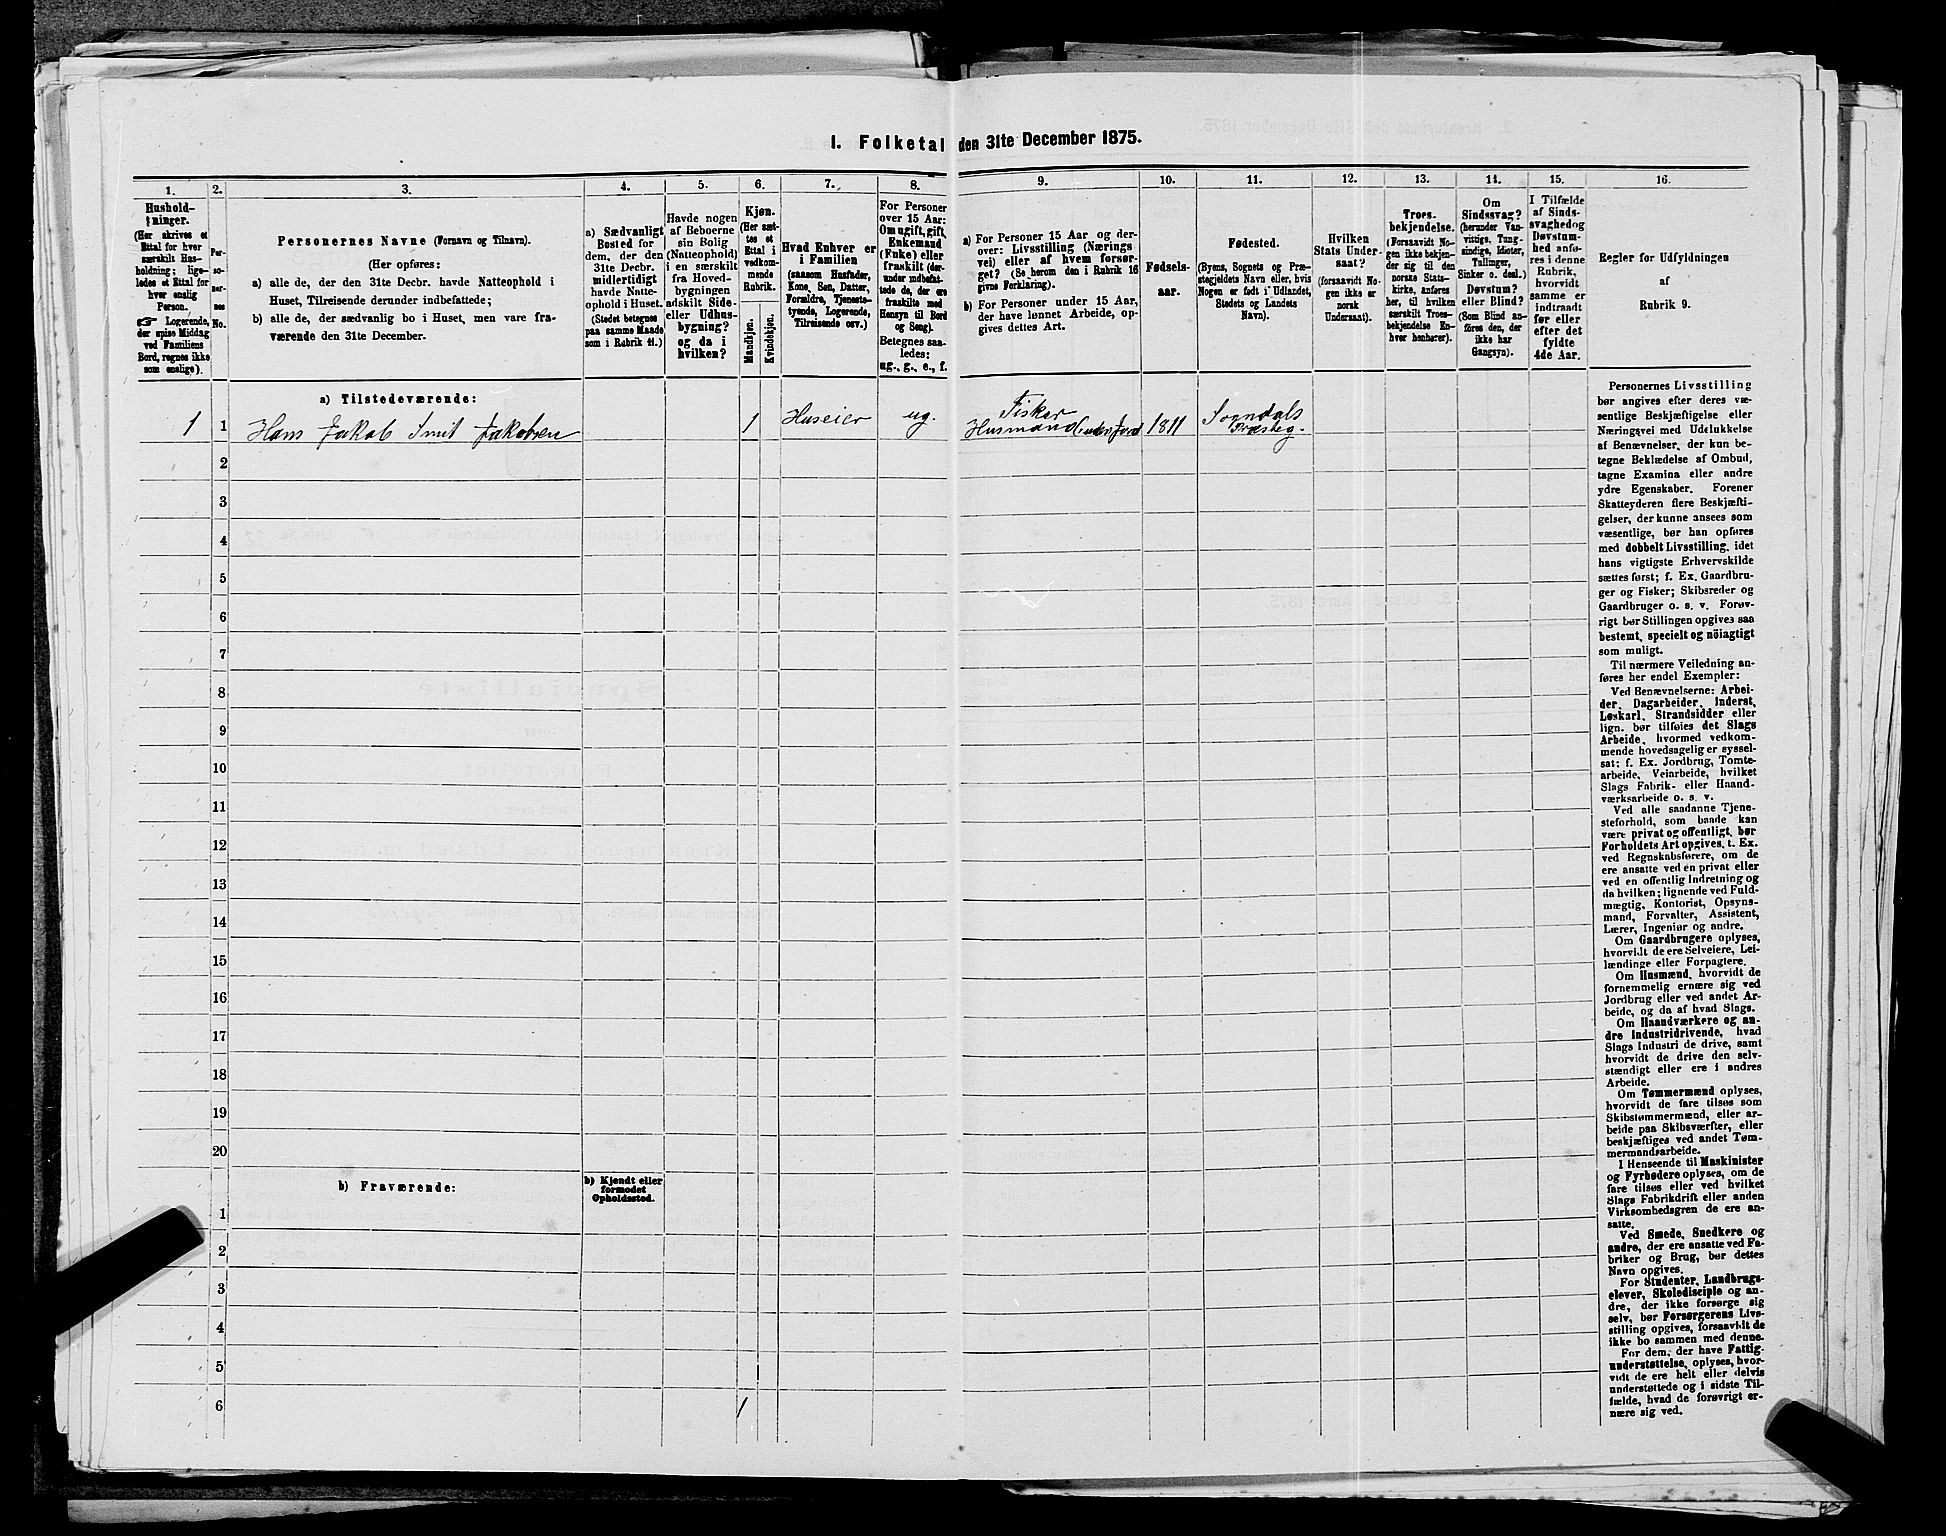 I. Folketal den 31te December 1875.
1.
2.
3.
4.
5.
6.
7.
8.
9.
10.
11.
12.
13.
14.
15.
16.
Hushold-
ninger.
(Her skrives et
Ettal for hver
særskilt Hus-
holdning; lige-
ledes et Ettal for
hver enslig
Person.
☞ Logerende,
der spise Middag
ved Familiens
Bord, regnes ikke
som enslige).
Per-
so-
ner-
nes
No.
Personernes Navne (Fornavn og Tilnavn).
(Her opføres:
a) alle de, der den 31te Decbr. havde Natteophold i
Huset, Tilreisende derunder indbefattede;
b) alle de, der sædvanlig bo i Huset, men vare fra-
værende den 31te December.
a) Sædvanligt
Bosted for
dem, der den
31te Decbr.
midlertidigt
havde Natte-
ophold i Huset.
(Stedet betegnes
paa samme Maade
som i Rubrik 11.)
Havde nogen
af Beboerne
sin Bolig
(Natteophold)
i en særskilt
fra Hoved-
bygningen
adskilt Side-
eller Udhus-
bygning?
og da i
hvilken?
Kjøn.
(Her sæt-
tes et
Ettal i
vedkom-
mende
Rubrik.
Mandkjøn.
Kvindekjøn.
Hvad Enhver er
i Familien
(saasom Husfader,
Kone, Søn, Datter,
Forældre, Tjeneste-
tyende, Logerende,
Tilreisende osv.)
For Personer
over 15 Aar:
Om ugift, gift,
Enkemand
(Enke) eller
fraskilt (der-
under indbefat-
tede de, der ere
fraskilte med
Hensyn til Bord
og Seng).
Betegnes saa-
ledes:
ug., g., e., f.
a) For Personer 15 Aar og der-
over: Livsstilling (Nærings
vei) eller af hvem forsør-
get? (Se herom den i Rubrik 16
givne Forklaring).
b) For Personer under 15 Aar,
der have lønnet Arbeide, op-
gives dettes Art.
Fødsels-
aar.
Fødested.
(Byens, Sognets og Præ-
stegjeldets Navn eller, hvis
Nogen er født i Udlandet,
Stedets og Landets
Navn).
Hvilken
Stats Under-
saat?
(forsaavidt No-
gen ikke er
norsk
Undersaat).
Troes-
bekjendelse.
(Forsaavidt No-
gen ikke bekjen-
der sig til den
norske Stats-
kirke, anføres
her, til hvilken
særskilt Troes-
bekjendelse En-
hver henhører).
Om
Sindssvag?
(herunder Van-
vittige, Tung-
sindige, Idioter,
Tullinger,
Sinker o. desl.)
Døvstum?
eller Blind?
(Som Blind an-
føres den, der
ikke har
Gangsyn).
I Tilfælde
af Sinds-
svaghed og
Døvstum-
hed anfø-
res i denne
Rubrik,
hvorvidt
samme er
indtraadt
før eller
efter det
fyldte
4de Aar.
Regler for Udfyldningen
af
Rubrik 9.
a) Tilstedeværende:
1 1 Hans Jakob Smit Jakobsen 1 Huseier ug. Fisker
Husmand uden Jord 1811 Sogndals
Præsteg.
2
3
4
5
6
7
8
9
10
11
12
13
14
15
16
17
18
19
20
b) Fraværende:
b) Kjendt eller
formodet
Opholdssted.
1
2
3
4
5
6
1
Personernes Livsstilling
bør angives efter deres væ-
sentlige Beskjæftigelse eller
Næringsvei med Udelukkelse
af Benævnelser, der kun be-
tegne Beklædelse af Ombud,
tagne Examina eller andre
ydre Egenskaber. Forener
Skatteyderen flere Beskjæfti-
gelser, der kunne ansees som
væsentlige, bør han opføres
med dobbelt Livsstilling, idet
hans vigtigste Erhvervskilde
sættes først; f. Ex. Gaardbru-
ger og Fisker; Skibsreder og
Gaardbruger o. s. v. Forøv-
rigt bør Stillingen opgives saa
bestemt, specielt og nöiagtigt
som muligt.
Til nærmere Veiledning an-
føres her endel Exempler:
Ved Benævnelserne: Arbei-
der, Dagarbeider, Inderst,
Løskarl, Strandsidder eller
lign. bør tilføies det Slags
Arbeide, hvormed vedkom-
mende hovedsagelig er syssel-
sat; f. Ex. Jordbrug, Tomte-
arbeide, Veiarbeide, hvilket
Slags Fabrik- eller Haand-
værksarbeide o. s. v.
Ved alle saadanne Tjene-
steforhold, som baade kan
være privat og offentligt, bør
Forholdets Art opgives, t. Ex.
ved Regnskabsførere, om de
ere ansatte ved en privat eller
ved en offentlig Indretning og
da hvilken; lignende ved Fuld-
mægtig, Kontorist, Opsyns-
mand, Forvalter, Assistent,
Lærer, Ingeniør og andre.
Om Gaardbrugere oplyses,
hvorvidt de ere Selveiere, Lei-
lændinge eller Forpagtere.
Om Husmænd, hvorvidt de
fornemmelig ernære sig ved
Jordbrug eller ved andet Ar-
beide, og da af hvad Slags.
Om Haandværkere og an-
dre Industridrivende, hvad
Slags Industri de drive, samt
hvorvidt de drive den selv-
stændigt eller ere i andres
Arbeide.
Om Tømmermænd oplyses,
hvorvidt de fare tilsøs som
Skibstømmermænd, eller ar-
beide paa Skibsværfter, eller
beskjæftiges ved andet Tøm-
mermandsarbeide.
I Henseende til Maskinister
og Fyrbødere oplyses, om de
fare tilsøs eller ved hvilket
Slags Fabrikdrift eller anden
Virksomhedsgren de ere an-
satte.
Ved Smede, Snedkere og
andre, der ere ansatte ved Fa-
briker og Brug, bør dettes
Navn opgives.
For Studenter, Landbrugs-
elever, Skoledisciple og an-
dre, der ikke forsørge sig
selv, bør Forsørgerens Livs-
stilling opgives, forsaavidt de
ikke bo sammen med denne.
For dem, der have Fattig-
understøttelse, oplyses, hvor-
vidt de ere helt eller delvis
understøttede og i sidste Til-
fælde, hvad de forøvrigt er-
nære sig ved.